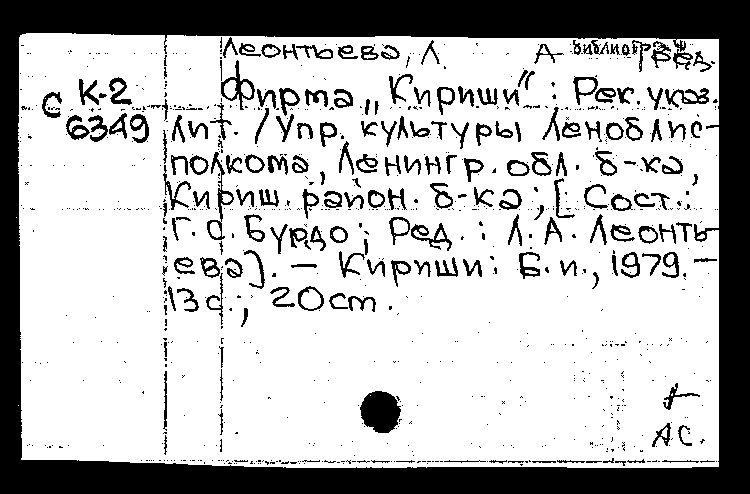 Леонтьева, Л А библиогр. ред.
С К-2 6349
Фирма „Кириши“ : Рек. указ.
лит. / Упр. культуры Леноблис-
полкома, Ленингр. обл. б-ка,
Кириш. район. б-ка ; [Сост.:
Г. С. Бурдо ; Ред. : Л. А. Леонть-
ева]. — Кириши : Б. и., 1979. —
13 с. ; 20 cm.
АС.